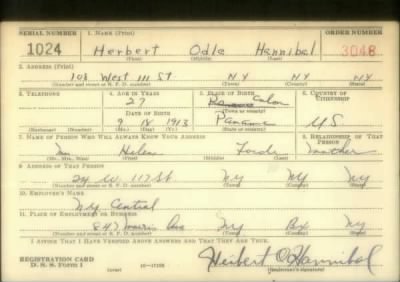 SERIAL NUMBER 1. NAME (Print) ORDER NUMBER
1024 Herbert Odle Hannibal 3048
(First) (Middle) (Last)
2. ADDRESS (Print)
108 West 111 St NY NY NY
(Number and street or R. F. D. number) (Town) (County) (State)
3. TELEPHONE 4. AGE IN YEARS 5. PLACE OF BIRTH 6. COUNTRY OF CITIZENSHIP
27 Colon
DATE OF BIRTH (Town or county)
9 1913 Panama U.S
(Exchange) (Number) (Mo.) (Day) (Yr.) (State or country)
7. NAME OF PERSON WHO WILL ALWAYS KNOW YOUR ADDRESS 8. RELATIONSHIP OF THAT PERSON
Helen Forde mother
(Mr., Mrs., Miss) (First) (Middle) (Last)
9. ADDRESS OF THAT PERSON
24 W. 117 St NY NY NY
(Number and street or R. F. D. number) (Town) (County) (State)
10. EMPLOYER'S NAME
NY Central
11. PLACE OF EMPLOYMENT OR BUSINESS
847 Morris Ave NY Bx NY
(Number and street or R. F. D. number) (Town) (County) (State)
I AFFIRM THAT I HAVE VERIFIED ABOVE ANSWERS AND THAT THEY ARE TRUE.
REGISTRATION CARD Herbert O Hannibal
D. S. S. FORM 1 (over) (Registrant's signature)